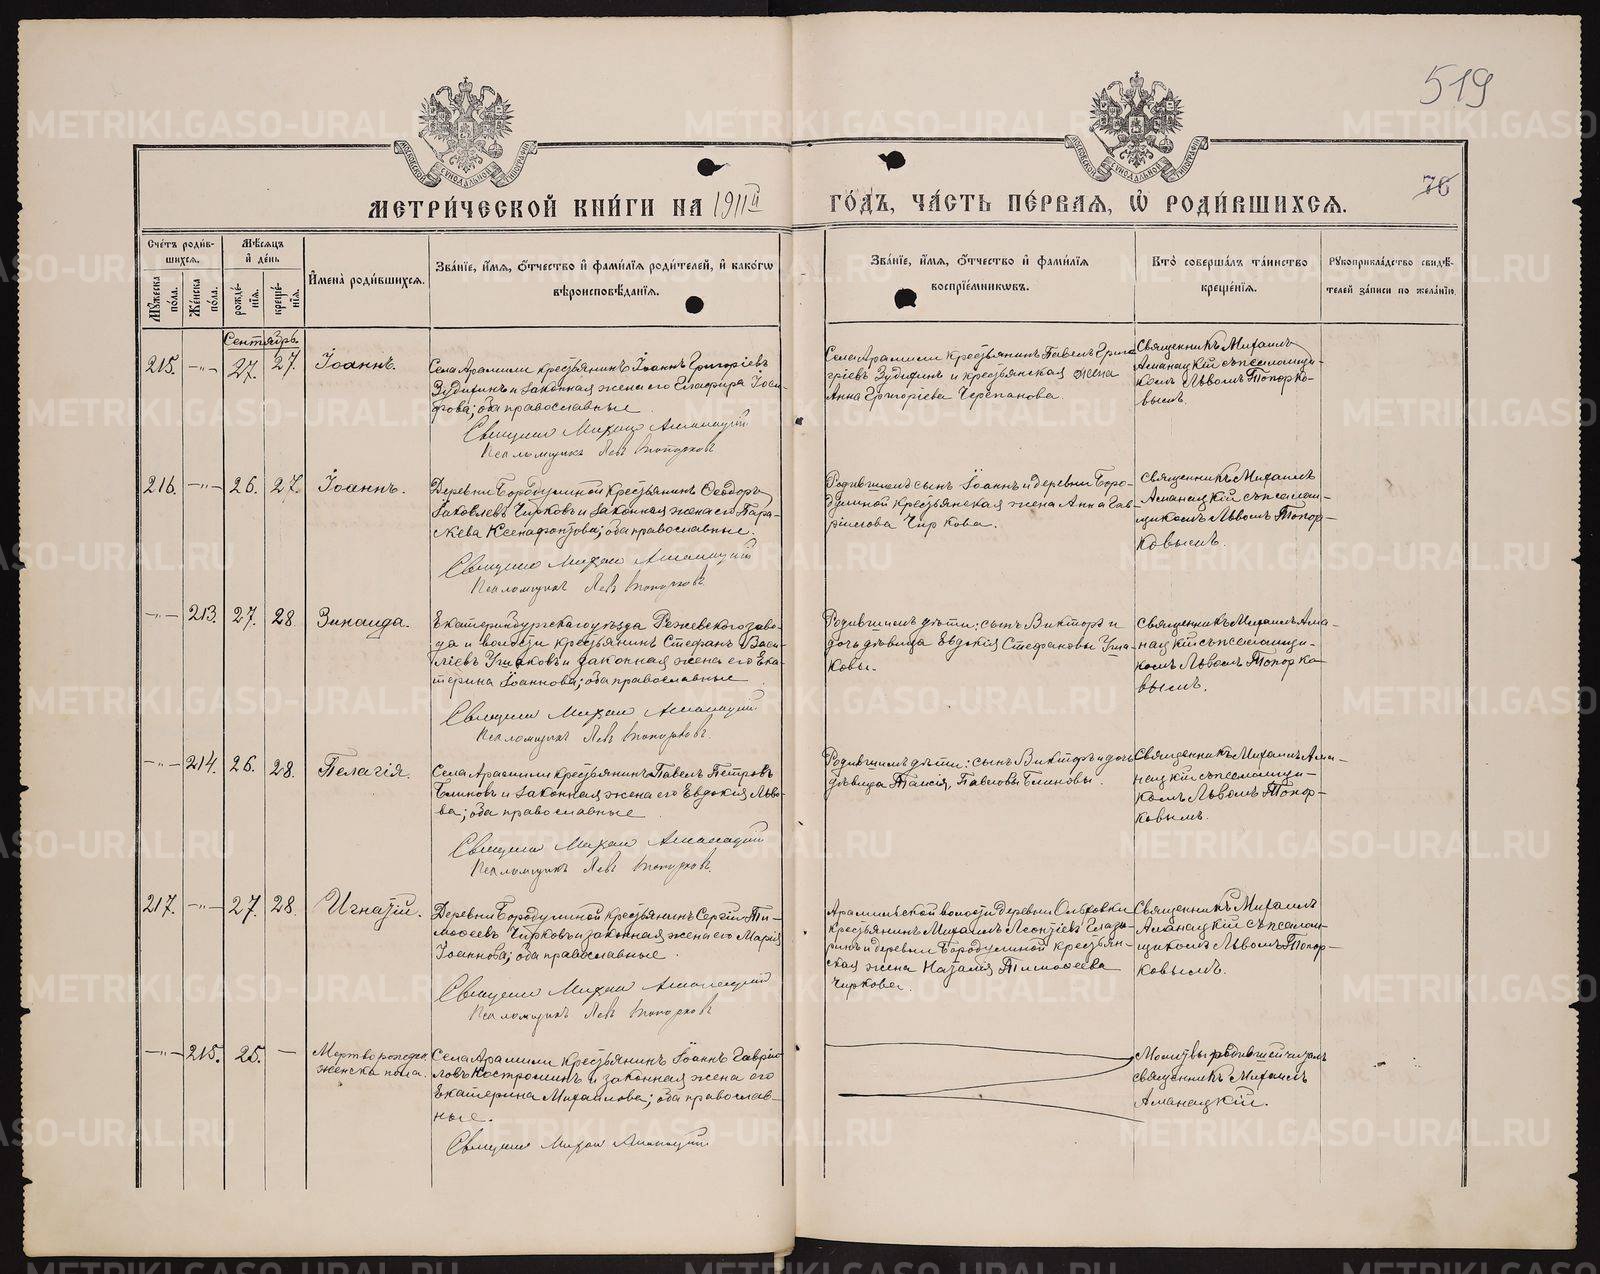 519
76
МЕТРИ́ЧЕСКОЙ КНИ́ГИ НА 1911й ГО́ДЪ, ЧА́СТЬ ПЕ́РВАЯ, Ѡ҆ РОДИ́ВШИХСЯ.
Сче́тъ роди́в-
шихся.
Мѣ́сяцъ
и҆ де́нь
Мꙋ́жеска
по́ла.
Же́нска
по́ла.
рожде́-
нїя.
креще́-
нїя.
И҆мена̀ роди́вшихся.
Зва́нїе, и҆́мя, ѻ҆́тчество и҆ фами́лїя роди́телей, и҆ како́гѡ
вѣроисповѣ́данїя.
Зва́нїе, и҆́мя, ѻ҆́тчество и҆ фами́лїя
воспрїе́мникѡвъ.
Кто̀ соверша́лъ та́инство
креще́нїя.
Рꙋкоприкла́дство свидѣ́-
телей за́писи по жела́нїю.
Сентябрь.
215. -„- 27. 27. Іоаннъ.
Села Арамили крестьянинъ Іоаннъ Григоріевъ
Зудихинъ и законная жена его Глафира Іоси-
фова; оба православные.
Священникъ Михаилъ Аманацкій
Псаломщикъ Левъ Топорковъ
Села Арамили крестьянинъ Павелъ Григо
ріевъ Зудихинъ и крестьянская жена
Анна Григоріева Черепанова.
Священникъ Михаилъ
Аманацкій съ псаломщи-
комъ Львомъ Топорко-
вымъ.
216. -„- 26. 27. Іоаннъ.
Деревни Бородулиной крестьянинъ Ѳеодоръ
Іаковлевъ Чирковъ и законная жена его Пара-
скева Ксенафонтова; оба православные.
Священникъ Михаилъ Аманацкій
Псаломщикъ Левъ Топорковъ
Родившихъ сынъ Іоаннъ и деревни Боро-
дулиной крестьянская жена Анна Гав-
ріилова Чиркова.
Священникъ Михаилъ
Аманацкій съ псалом-
щикомъ Львомъ Топор-
ковымъ.
-„- 213. 27. 28. Зинаида.
Екатеринбургскаго уѣзда Режевского заво-
да и волости крестьянинъ Стефанъ Васи-
ліевъ Ушаковъ и законная жена его Ека-
терина Іоаннова; оба православные
Священникъ Михаилъ Аманацкій
Псаломщикъ Левъ Топорковъ.
Родившихъ дѣти: сынъ Викторъ и
дочь дѣвица Евдокія Стефановы Уша-
ковы.
Священникъ Михаилъ Ама-
нацкій съ псаломщи-
комъ Львомъ Топорко
вымъ.
-„- 214. 26. 28. Пелагія.
Села Арамили крестьянинъ Павелъ Петровъ
Блиновъ и законная жена его Евдокія Льво-
ва; оба православные
Священникъ Михаилъ Аманацкій
Псаломщикъ Левъ Топорковъ.
Родившихъ дѣти: сынъ Викторъ и дочь
дѣвица Таисія, Павловы Блиновы.
Священникъ Михаилъ Ама-
нацкій съ псаломщи-
комъ Львомъ Топор-
ковымъ.
217. -„- 27. 28. Игнатій.
Деревни Бородулиной крестьянинъ Сергій Ти-
моѳеевъ Чирковъ и законная жена его Марія
Іоаннова; оба православные.
Священникъ Михаилъ Аманацкій
Псаломщикъ Левъ Топорковъ
Арамильской волости деревни Ольховки
крестьянинъ Михаилъ Леонтіевъ Глазы-
ринъ и деревни Бородулиной крестьян-
ская жена Наталія Тимоѳеева
Чиркова.
Священникъ Михаилъ
Аманацкій съ псалом-
щикомъ Львомъ Топор-
ковымъ.
-„- 215. 25. — Мертворожден.
женска пола.
Села Арамили крестьянинъ Іоаннъ Гаврі-
ловъ Костромин и законная жена его
Екатерина Михаилова; оба православ-
ные.
Священникъ Михаилъ Аманацкій
Молитвы родившей читалъ
священникъ Михаилъ
Аманацкій.